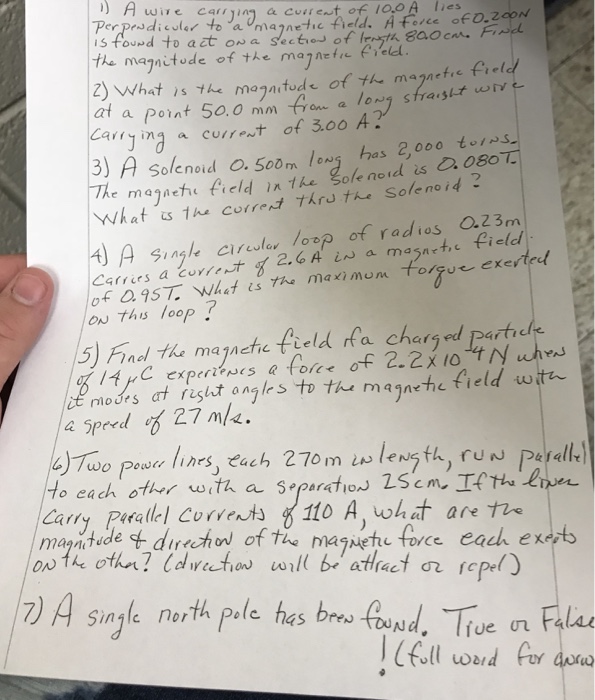 1) A wire carrying a current of 10.0 A lies
Perpendicular to a magnetic field. A force of 0.200N
is found to act on a section of length 80.0 cm. Find
the magnitude of the magnetic field.
2) What is the magnitude of the magnetic field
at a point 50.0 mm from a long straight wire
carrying a current of 3.00 A?
3) A solenoid 0.500m long has 2,000 turns.
The magnetic field in the solenoid is 0.080T.
What is the current thru the solenoid?
4) A single circular loop of radius 0.23m
carries a current of 2.6A in a magnetic field
of 0.95T. What is the maximum torque exerted
on this loop?
5) Find the magnetic field if a charged particle
of 14 μC experiences a force of 2.2 x 10⁻⁴ N when
it moves at right angles to the magnetic field with
a speed of 27 m/s.
6) Two power lines, each 270m in length, run parallel
to each other with a separation 25cm. If the lines
carry parallel currents of 110 A, what are the
magnitude & direction of the magnetic force each exerts
on the other? (direction will be attract or repel)
7) A single north pole has been found. True or False
! (full word for